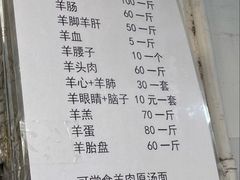 羊肠 100一斤
羊脚羊肝 60一斤
羊血 50一斤
羊腰子 5一斤
羊头肉 10一个
羊心+羊肺 60一斤
羊眼睛+脑子 30一套
羊羔 10元一套
羊蛋 70一斤
羊胎盘 80一斤
60一斤
可堂食羊肉原汤面